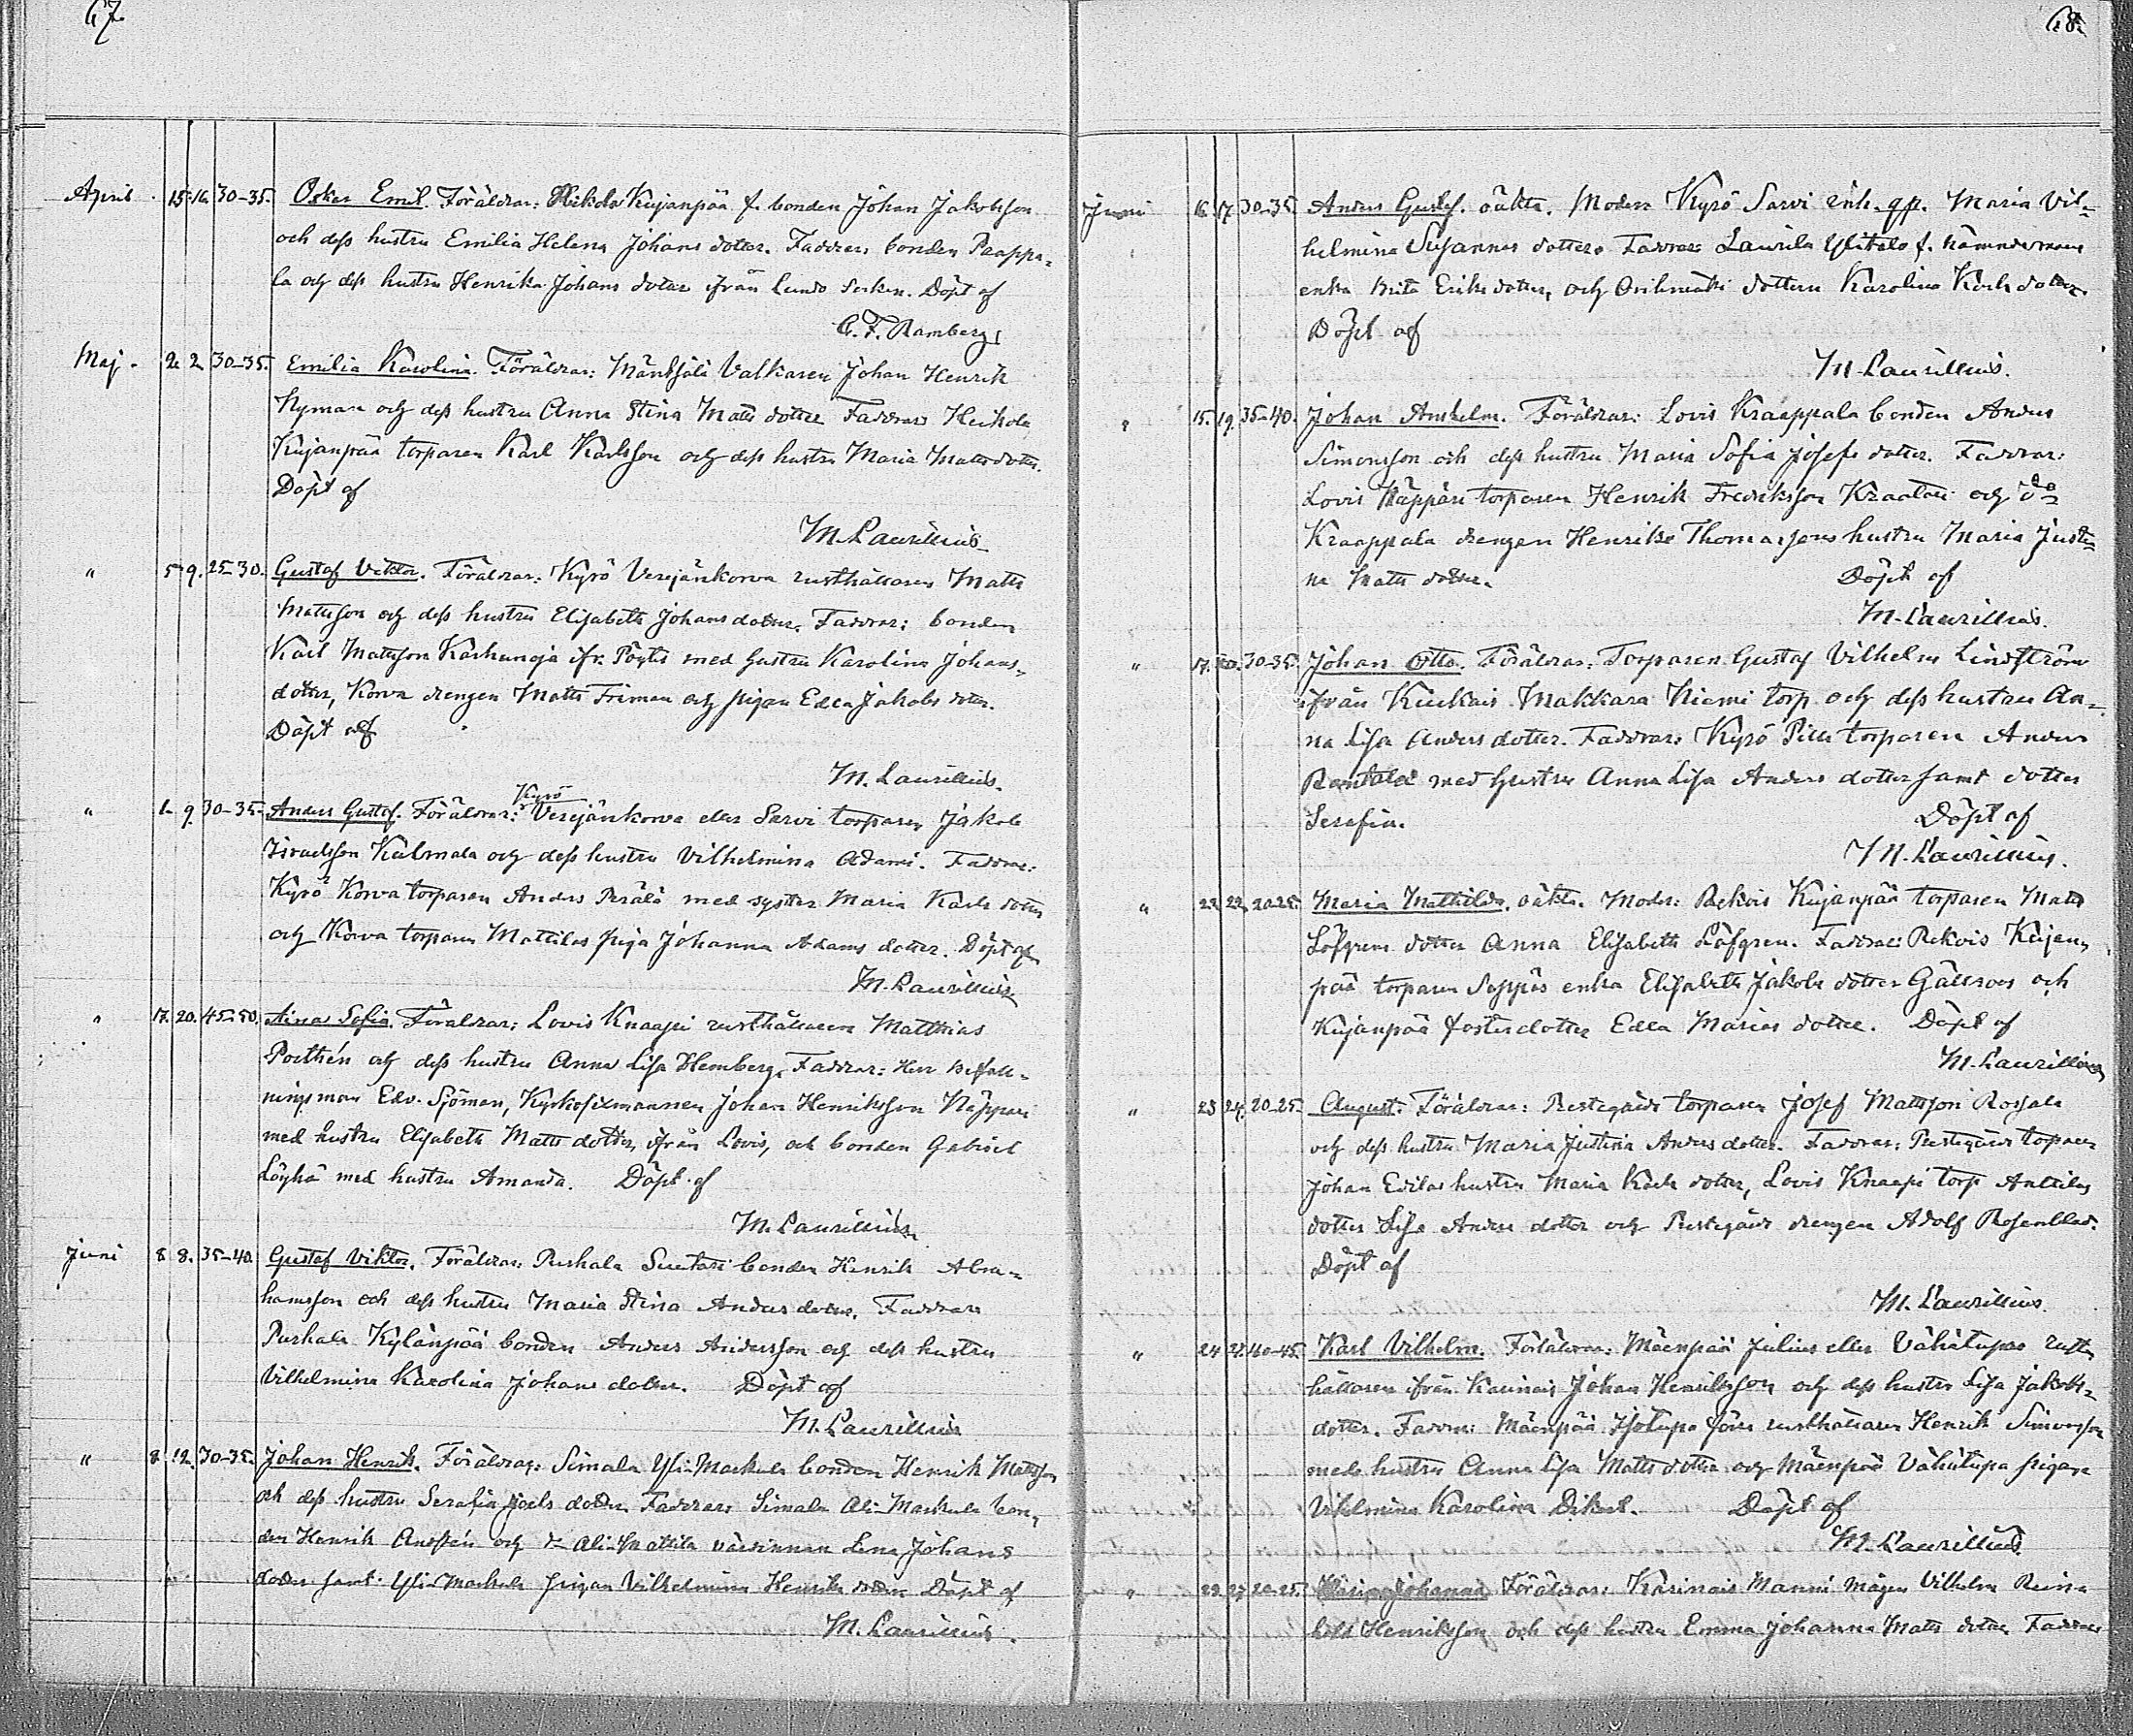 67.
April 15. 16. 30–35. Oskar Emil. Föräldrar: Heikola Kujanpää f. bonden Johan Jakobsson
och dess hustru Emilia Helena Johans dotter. Faddrar: bonden Paappa-
la och dess hustru Henrika Johans dotter ifrån Lundo Socken. Döpt af
C. F. Ramberg
Maj. 2. 2. 30–35. Emilia Karolina. Föräldrar: Mäntsälä Valkaren Johan Henrik
Nyman och dess hustru Anna Stina Matts dotter Faddrar Heikola
Kujanpää torparen Karl Karlsson och dess hustru Maria Matts dotter.
Döpt af
M. Laurillius
" 5 9. 25–30. Gustaf Viktor. Föräldrar: Kyrö Verejänkorva rusthållaren Matts
Mattsson och dess hustru Elisabeth Johans dotter. Faddrar: bonden
Karl Mattsson Karhunoja ifr. Pöytis med hustru Karolina Johans-
dotter, Korva drengen Matts Friman och pigan Edla Jakobs dotter.
Döpt af
M. Laurillius.
" 1. 9. 30–35. Anders Gustaf. Föräldrar: Kyrö Verejänkorva eller Sarvi torparen Jakob
Israelsson Kulmala och dess hustru Vilhelmina Adami. Faddrar:
Kyrö Korva torparen Anders Perälä med syster Maria Karls dotter
och Korva torparen Mattilas piga Johanna Adams dotter. Döpt af
M. Laurillius
" 17. 20. 45–50. Aina Sofia. Föräldrar: Lovis Knaapi rusthållaren Matthias
Porthén och dess hustru Anna Lisa Hemberg. Faddrar: Herr Befall-
ningsman Edv. Sjöman, Kyrkosexmannen Johan Henriksson Näppari
med hustru Elisabeth Matts dotter, ifrån Lovis, och bonden Gabriel
Löyhä med hustru Amanda. Döpt af
M. Laurillius
Juni 8 8. 35–40. Gustaf Viktor. Föräldrar: Purhala Suutari bonden Henrik Abra-
hamsson och dess hustru Maria Stina Anders dotter. Faddrar
Purhala Kylänpää bonden Anders Andersson och dess hustru
Vilhelmina Karolina Johans dotter. Döpt af
M. Laurillius
" 8. 12. 30–35. Johan Henrik. Föräldrar: Simala Yli-Markula bonden Henrik Mattsson
och dess hustru Serafia Joels dotter Faddrar Simala Ali-Markula bon-
den Henrik och do Ali-Mattila värdinnan Lena Johans
dotter samt Yli-Markula pigan Vilhelmina Henriks dotter Döpt af
M. Laurillius.
68.
Juni 16. 17. 30–35. Anders Gustaf. oäkta. Modern Kyrö Sarvi inh. qp. Maria Vil-
helmina Susannas dotter. Faddrar: Laurila Ylitalo f. nämndemans
enka Brita Eriks dotter, och dottern Karolina Karls dotter.
Döpt af
M. Laurillius.
" 15. 19. 35–40. Johan Anshelm. Föräldrar: Lovis Kraappala bonden Anders
Simonsson och dess hustru Maria Sofia Josefs dotter. Faddrar:
Lovis Näppäri torparen Henrik Fredriksson och do
Kraappala drengen Henriks Thomassons hustru Maria Justi-
na Matts dotter. Döpt af
M. Laurillius.
" 17. 20. 30–35. Johan Otto. Föräldrar: Torparen Gustaf Vilhelm Lindström
ifrån Kiukais Makkara Niemi torp och dess hustru An-
na Lisa Anders dotter. Faddrar: Kyrö Pilli torparen Anders
Rantala med hustru Anna Lisa Anders dotter samt dotter
Serafia. Döpt af
M. Laurillius.
" 22. 22. 20–25. Maria Mathilda. oäkta. Moder: Rekois Kujanpää torparen Matts
Löfgrens dotter Anna Elisabeth Löfgren. Faddrar: Rekois Kujan-
pää torparen Seppäs enka Elisabeth Jakobs dotter Gällroos och
Kujanpää fosterdotter Edla Marias dotter. Döpt af
M. Laurillius
" 23 24. 20–25. August. Föräldrar: Prestegårds torparen Josef Mattsson
och dess hustru Maria Justina Anders dotter. Faddrar: Prestegårds torparen
Johan Eerilas hustru Maria Karls dotter, Lovis Knaapi torp Anttilas
dotter Lisa Anders dotter och Prestegårds drengen Adolf Rosenblad.
Döpt af
M. Laurillius.
" 24 27. 40–45. Karl Vilhelm. Föräldrar: Mäenpää Julius eller Vähätupas rust-
hållaren ifrån Karinais Johan Henriksson och dess hustru Lisa Jakobs-
dotter. Faddrar: Mäenpää Isotupa förre rusthållaren Henrik Simonsson
med hustru Anna Lisa Matts dotter och Mäenpää Vähätupa pigan
Vilhelmina Karolina Dikert. Döpt af
M. Laurillius.
" 23. 27. 20–25. Johanna Föräldrar: Karinais Manni mågen Vilhelm Rein-
hold Henriksson och dess hustru Emma Johanna Matts dotter Faddrar